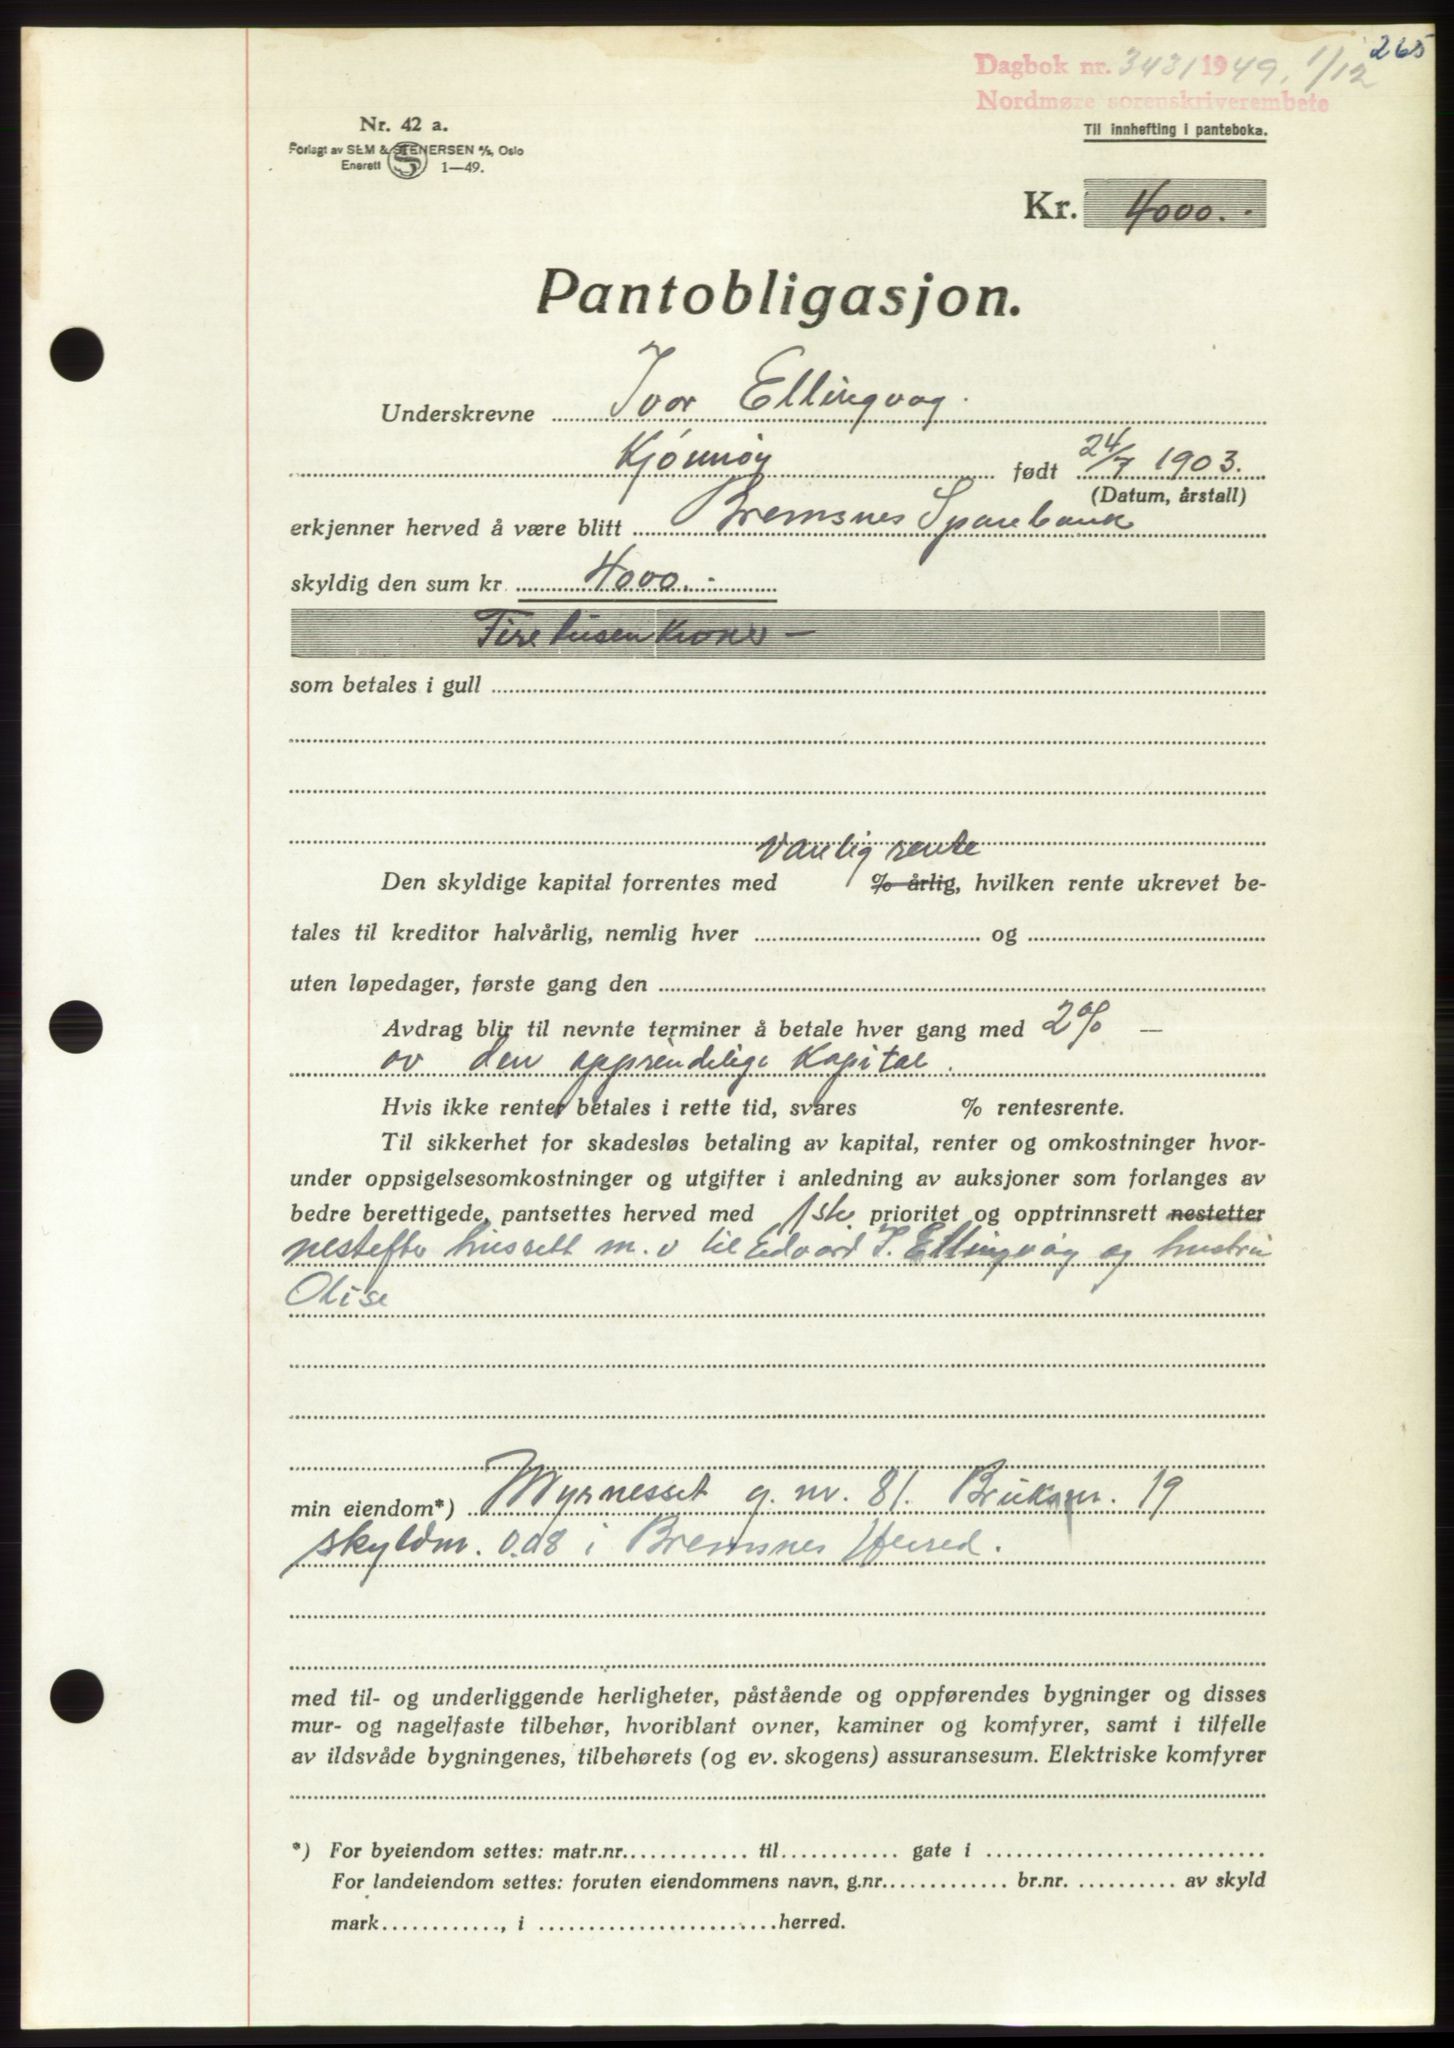 265
Dagbok nr. 3431 1949, 1/12
Nordmøre sorenskriverembete
Til innhefting i panteboka.
Nr. 42 a.
Forlagt av SEM & STENERSEN A/S, Oslo
Enerett S 1—49.
Kr. 4000.-
Pantobligasjon.
Underskrevne Ivar Ellingvåg.
Kjønnøy født 24/7 1903.
(Datum, årstall)
erkjenner herved å være blitt Bremsnes Sparebank
skyldig den sum kr. 4000.-
Fire tusen kroner —
som betales i gull
Vanlig rente
Den skyldige kapital forrentes med % årlig, hvilken rente ukrevet be-
tales til kreditor halvårlig, nemlig hver og
uten løpedager, første gang den
Avdrag blir til nevnte terminer å betale hver gang med 2% —
av den opprindelige Kapital.
Hvis ikke renter betales i rette tid, svares % rentesrente.
Til sikkerhet for skadesløs betaling av kapital, renter og omkostninger hvor-
under oppsigelsesomkostninger og utgifter i anledning av auksjoner som forlanges av
bedre berettigede, pantsettes herved med 1ste prioritet og opptrinnsrett nestetter
nestefter husrett m.v til Edvard I. Ellingvåg og hustru
Olise
min eiendom*) Myrnesset g. nr. 81. Bruksnr. 19
skyldm. 0.08 i Bremsnes Herred.
med til- og underliggende herligheter, påstående og oppførendes bygninger og disses
mur- og nagelfaste tilbehør, hvoriblant ovner, kaminer og komfyrer, samt i tilfelle
av ildsvåde bygningenes, tilbehørets (og ev. skogens) assuransesum. Elektriske komfyrer
*) For byeiendom settes: matr.nr. til gate i
For landeiendom settes: foruten eiendommens navn, g.nr. br.nr. av skyld
mark , i herred.